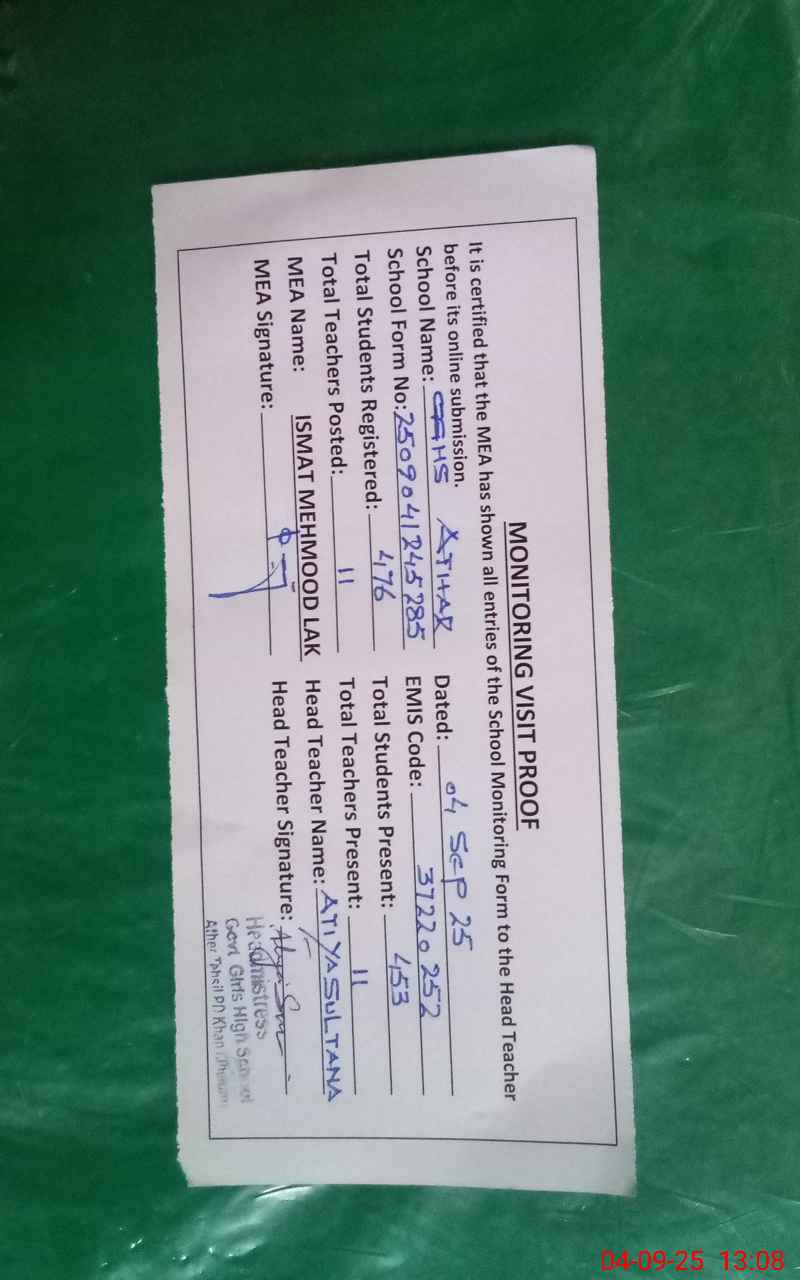 MONITORING VISIT PROOF
It is certified that the MEA has shown all entries of the School Monitoring Form to the Head Teacher
before its online submission.
School Name: GGHS ATHAR Dated: 04 SEP 25
School Form No: 2509041245285 EMIS Code: 37220252
Total Students Registered: 476 Total Students Present: 453
Total Teachers Posted: 11 Total Teachers Present: 11
MEA Name: ISMAT MEHMOOD LAK Head Teacher Name: ATIYA SULTANA
MEA Signature: Head Teacher Signature:
Headmistress
Govt Girls High School
Ather Tehsil PD Khan
04-09-25 13:08